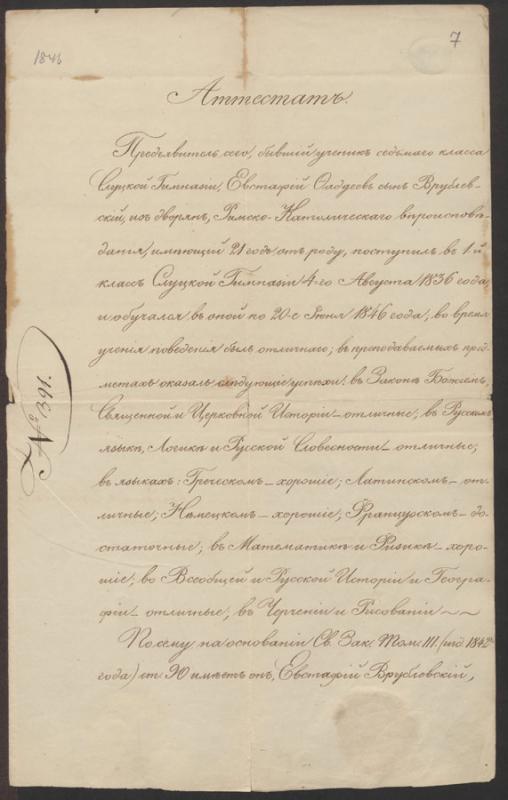 1846
7
Аттестатъ.
Предъявитель сего, бывшій ученикъ седьмаго класса
Слуцкой Гимназіи, Евстафій Фаддеевъ сынъ Врублев-
скій, изъ дворянъ, Римско-Католическаго вѣроисповѣ-
данія, имѣющій 21 годъ отъ роду, поступилъ въ 1-й
классъ Слуцкой Гимназіи 4-го Августа 1836 года,
и обучался въ оной по 20-е Іюня 1846 года; во время
ученія поведенія былъ отличнаго; въ преподаваемыхъ пред-
метахъ оказалъ слѣдующіе успѣхи: въ Законѣ Божіемъ,
Священной и Церковной Исторіи – отличные; въ Русскомъ
языкѣ, Логикѣ и Русской Словесности – отличные;
въ языкахъ: Греческомъ – хорошіе; Латинскомъ – от-
личные; Нѣмецкомъ – хорошіе; Французскомъ – до-
статочные; въ Математикѣ и Физикѣ – хоро-
шіе; во Всеобщей и Русской Исторіи и Геогра-
фіи – отличные; въ Черченіи и Рисованіи ~ ~
По сему, на основаніи Св. Зак. Том. III. (изд. 1842
года) ст. 90 имѣетъ онъ, Евстафій Врублевскій,
№ 1391.